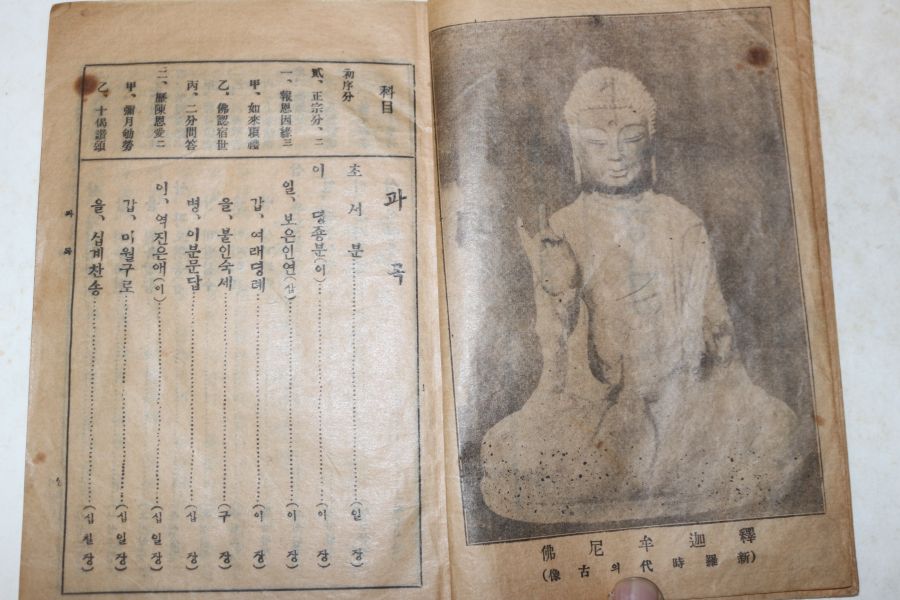 釋迦牟尼佛
(新羅時代의古像)
科目
初序分
貳、正宗分、二
一、報恩因緣三
甲、如來頂禮
乙、佛認宿世
丙、二分問答
二、歷陳恩愛二
甲、彌月劬勞
乙、十偈讚頌
과곡
초서분 (일장)
이、뎡죵분(이)……(이장)
일、보은인연(삼)……(이장)
갑、여래뎡례……(이장)
을、불인숙세……(구장)
병、이분문답……(십장)
이、역진은애(이)……(십일장)
갑、미월구로……(십일장)
을、십계찬송……(십칠장)
과목